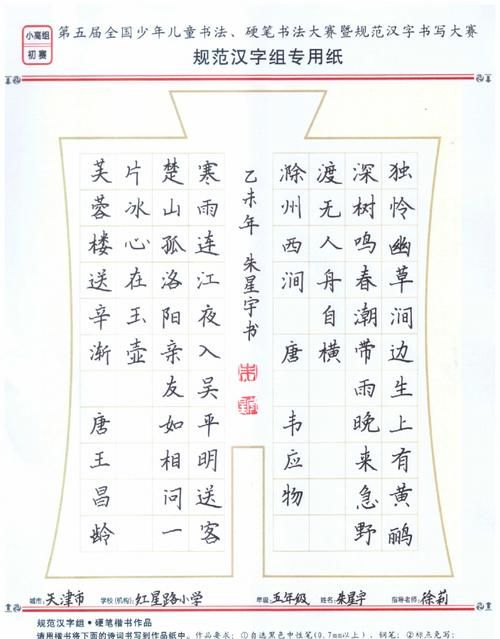 小高组
初赛
第五届全国少年儿童书法、硬笔书法大赛暨规范汉字书写大赛
规范汉字组专用纸
独怜幽草涧边生上有黄鹂
深树鸣春潮带雨晚来急野
渡无人舟自横
滁州西涧 唐 韦应物
乙未年 朱星宇书
寒雨连江夜入吴平明送客
楚山孤洛阳亲友如相问一
片冰心在玉壶
芙蓉楼送辛渐 唐 王昌龄
城市:天津市 学校(机构):红星路小学 年级:五年级 姓名:朱星宇 指导老师:徐莉
规范汉字组·硬笔楷书作品
请用楷书将下面的诗词书写到作品纸中。作品要求:①自选黑色中性笔(0.7mm以上)、钢笔;②标点免写;